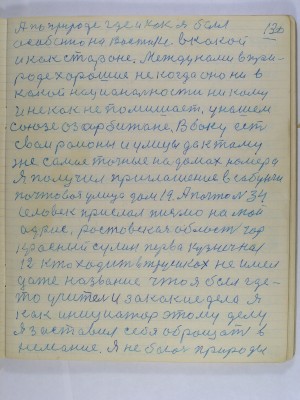 130
А по природе где и как я был
особенно на востоке. в какой
и как стороне. Между нами в при-
роде хорошие некогда оно ни в
какой национальности никому
и не как не помишает. у нашем
союзе Озарбижане. В Баку есть
свои районы и улицы да к тому
же самые точные на домах номера
Я получил приглашение в сабунчи
почтовая улица дом 19. А почто № 34
человек прислал письмо на мой
адрис. ростовская область гор
красный сулин перва кузнечная
12 кто ходит в трусиках не имел
даже название что я был где-
то учител и за какие дела я
как инициатор этому делу
Я заставил себя обращать в
нимание. Я не болея природы